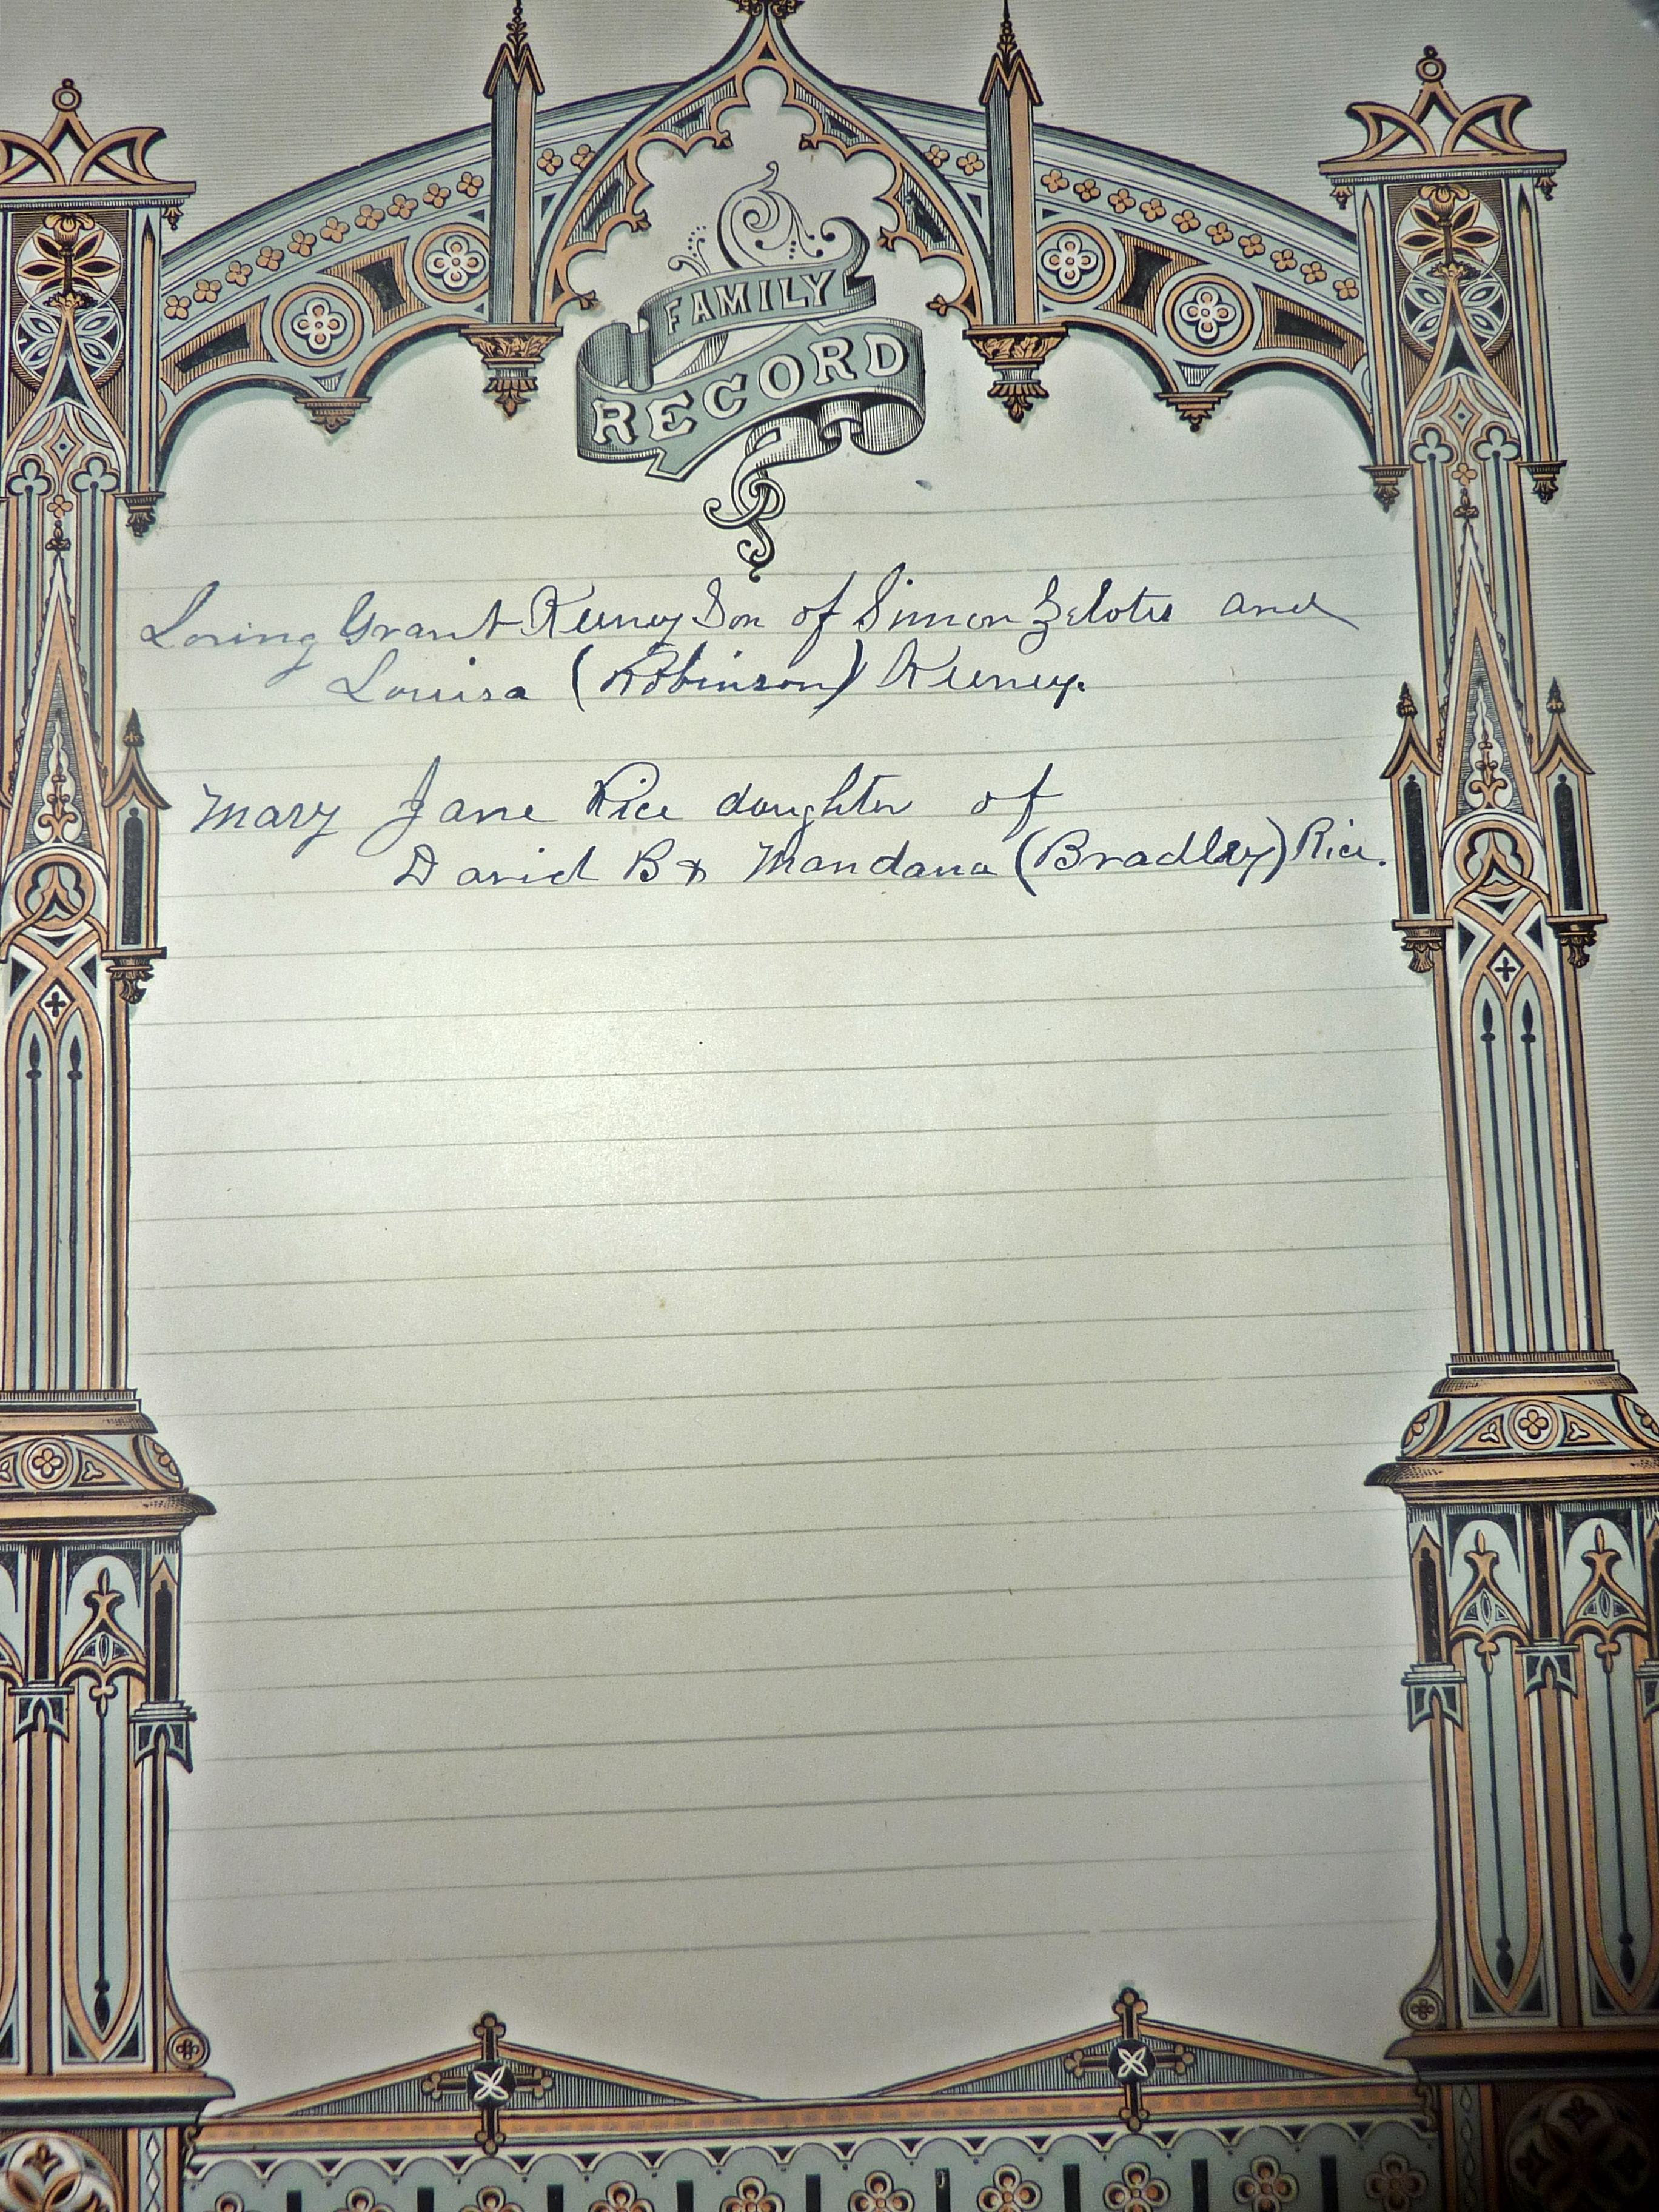 FAMILY
RECORD
Loring Grant Keeney Son of Simon Zelotes and
Louisa (Robinson) Keeney.
Mary Jane Rice daughter of
David B & Mandana (Bradley) Rice.